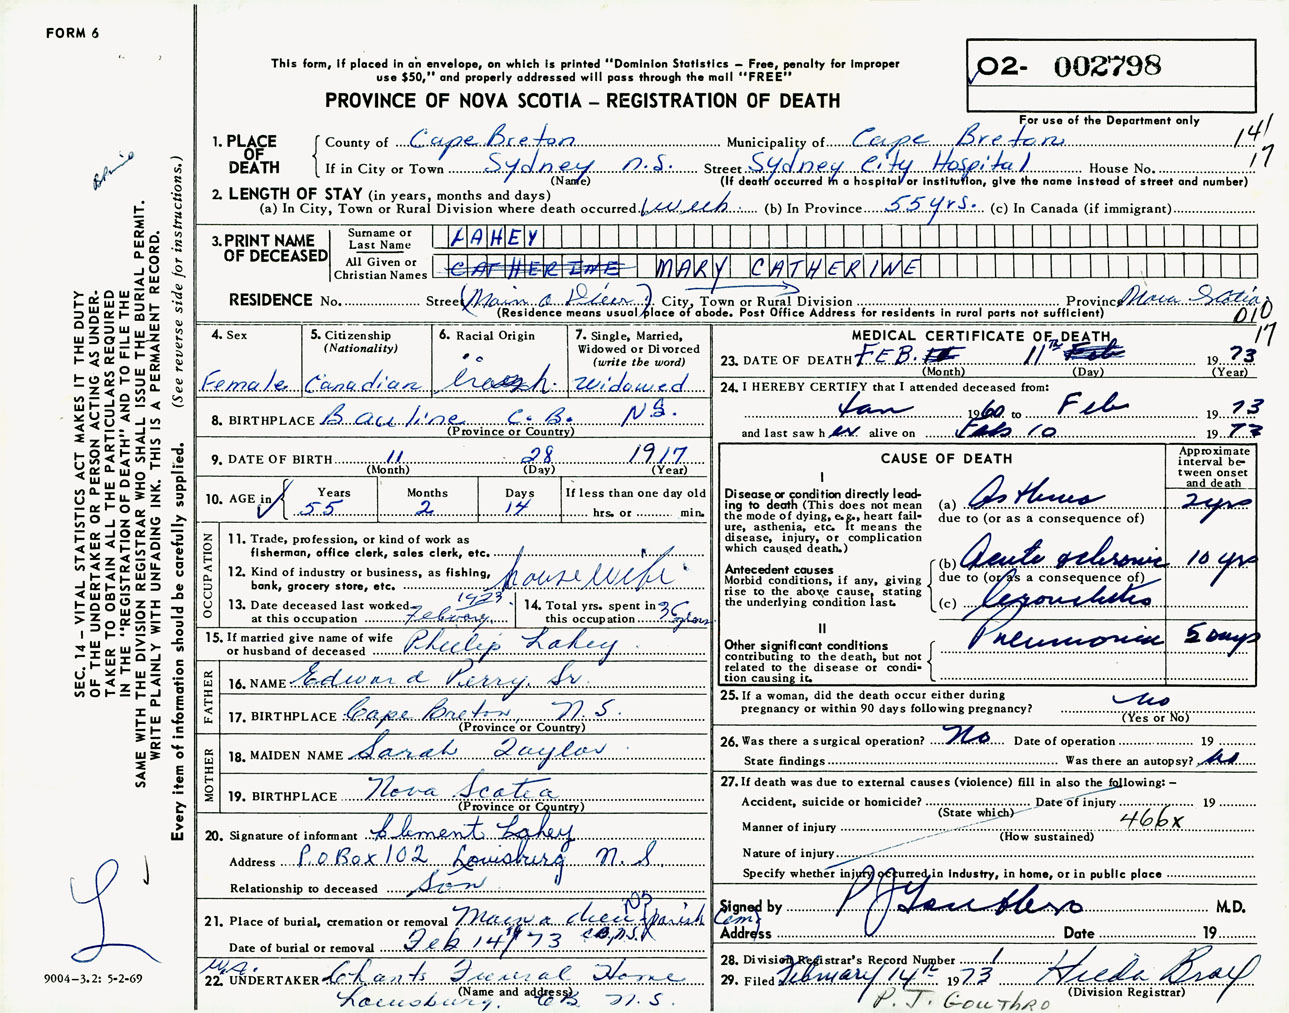 FORM 6
This form, if placed in an envelope, on which is printed "Dominion Statistics – Free, penalty for improper
use $50," and properly addressed will pass through the mail "FREE"
PROVINCE OF NOVA SCOTIA – REGISTRATION OF DEATH
02- 002798
For use of the Department only
141
17
1. PLACE OF DEATH County of Cape Breton Municipality of Cape Breton
If in City or Town Sydney N.S. Street Sydney City Hospital House No.
(Name) (If death occurred in a hospital or institution, give the name instead of street and number)
2. LENGTH OF STAY (in years, months and days)
(a) In City, Town or Rural Division where death occurred 1 week (b) In Province 55 yrs. (c) In Canada (if immigrant)
3. PRINT NAME OF DECEASED Surname or Last Name LAHEY
All Given or Christian Names CATHERINE MARY CATHERINE
RESIDENCE No. Street (Main a Dieu) City, Town or Rural Division Province Nova Scotia
(Residence means usual place of abode. Post Office Address for residents in rural parts not sufficient)
010
17
4. Sex Female
5. Citizenship (Nationality) Canadian
6. Racial Origin
7. Single, Married, Widowed or Divorced (write the word) Widowed
8. BIRTHPLACE Bauline C.B. N.S.
(Province or Country)
9. DATE OF BIRTH 11 28 1917
(Month) (Day) (Year)
10. AGE in Years 55 Months 2 Days 14 If less than one day old hrs. or min.
OCCUPATION
11. Trade, profession, or kind of work as fisherman, office clerk, sales clerk, etc.
12. Kind of industry or business, as fishing, bank, grocery store, etc. housewife
13. Date deceased last worked at this occupation February 1973 14. Total yrs. spent in this occupation 36 years
15. If married give name of wife or husband of deceased Philip Lahey
FATHER
16. NAME Edward Perry, Sr.
17. BIRTHPLACE Cape Breton, N.S.
(Province or Country)
MOTHER
18. MAIDEN NAME Sarah Taylor
19. BIRTHPLACE Nova Scotia
(Province or Country)
20. Signature of informant Clement Lahey
Address P.O Box 102 Louisburg N.S
Relationship to deceased Son
21. Place of burial, cremation or removal Main a dieu N.S. Parish Cem
Date of burial or removal Feb 14th 73 C.B., N.S.
22. UNDERTAKER Chants Funeral Home
(Name and address)
Louisburg, CB N.S.
MEDICAL CERTIFICATE OF DEATH
23. DATE OF DEATH FEB. 11th 1973
(Month) (Day) (Year)
24. I HEREBY CERTIFY that I attended deceased from:
Jan 1960 to Feb 1973
and last saw her alive on Feb 10 1973
CAUSE OF DEATH
Approximate interval between onset and death
I
Disease or condition directly leading to death (This does not mean the mode of dying, e.g., heart failure, asthenia, etc. It means the disease, injury, or complication which caused death.)
(a) Asthma 2 yrs
due to (or as a consequence of)
Antecedent causes
Morbid conditions, if any, giving rise to the above cause, stating the underlying condition last.
(b) Acute & chronic 10 yrs
due to (or as a consequence of)
(c)
II
Other significant conditions contributing to the death, but not related to the disease or condition causing it.
Pneumonia 5 days
25. If a woman, did the death occur either during pregnancy or within 90 days following pregnancy? No
(Yes or No)
26. Was there a surgical operation? No Date of operation 19
State findings Was there an autopsy? No
27. If death was due to external causes (violence) fill in also the following: –
Accident, suicide or homicide? Date of injury 19
(State which)
Manner of injury 466x
(How sustained)
Nature of injury
Specify whether injury occurred in industry, in home, or in public place
Signed by P J Gouthro M.D.
Address Date 19
28. Division Registrar's Record Number 1
29. Filed February 14th 1973 Hilda Bray
(Division Registrar)
P. J. GOUTHRO
SEC. 14 – VITAL STATISTICS ACT MAKES IT THE DUTY
OF THE UNDERTAKER OR PERSON ACTING AS UNDER-
TAKER TO OBTAIN ALL THE PARTICULARS REQUIRED
IN THE "REGISTRATION OF DEATH" AND TO FILE THE
SAME WITH THE DIVISION REGISTRAR WHO SHALL ISSUE THE BURIAL PERMIT.
WRITE PLAINLY WITH UNFADING INK. THIS IS A PERMANENT RECORD.
Every item of information should be carefully supplied. (See reverse side for instructions.)
L
9004–3.2: 5-2-69